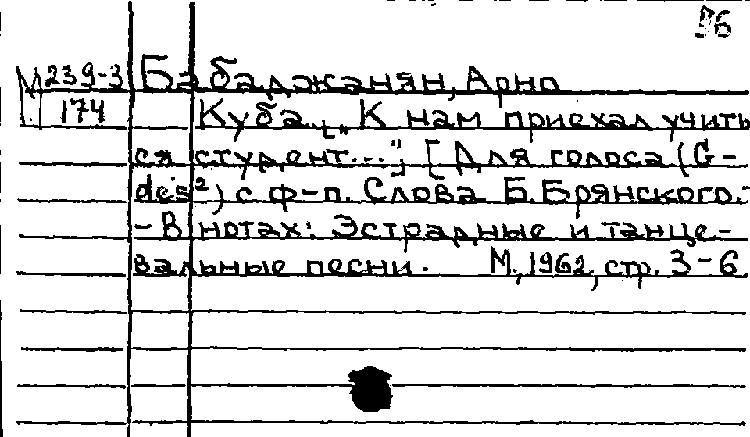 96
М 239-3 Бабаджанян, Арно
174 Куба. [„К нам приехал учить
ся студент..."] [Для голоса (G-
des²) с ф-п. Слова Б. Брянского.-
- В нотах: Эстрадные и танце-
вальные песни. М., 1962, стр. 3-6